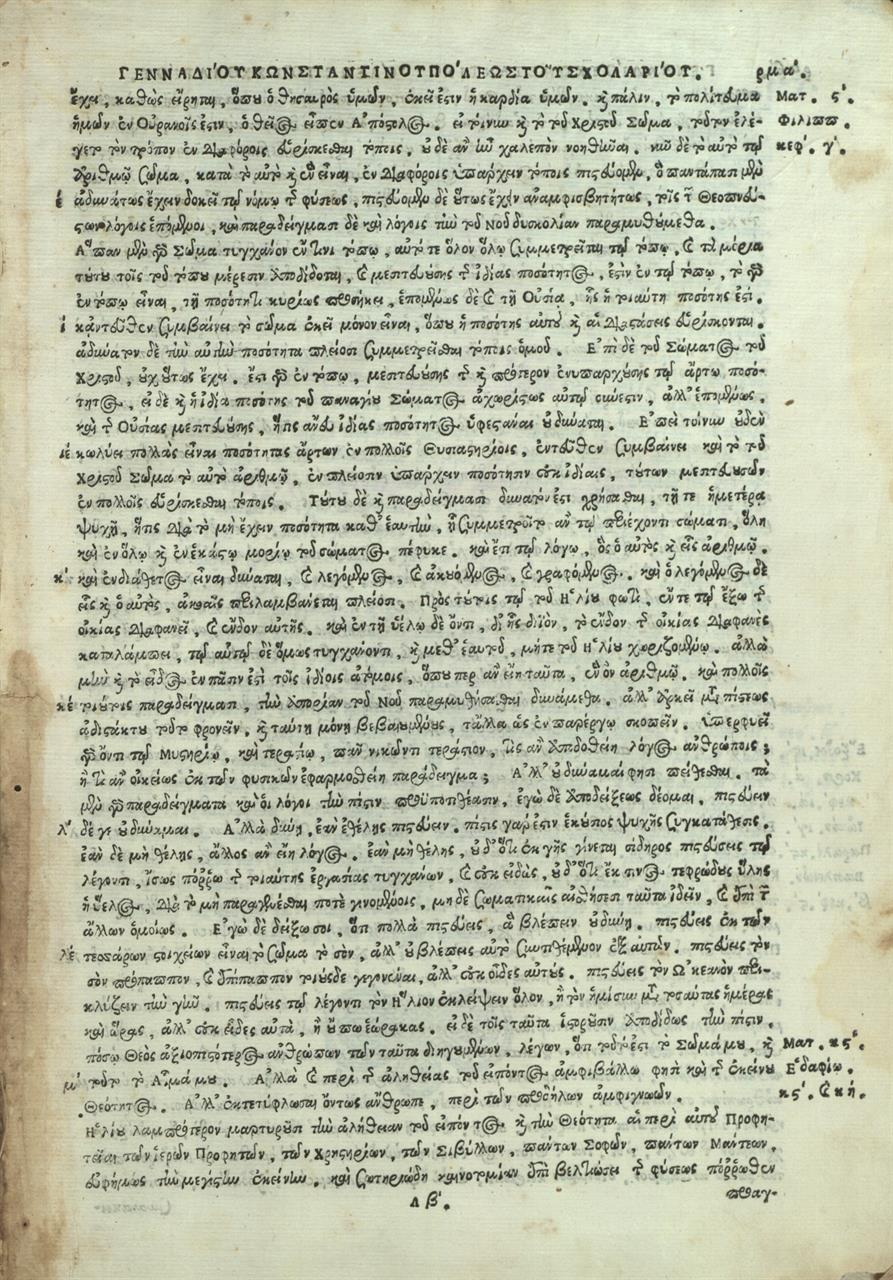 ΓΕΝΝΑΔΙ΄ΟΥ ΚΩΝΣΤΑΝΤΙΝΟΥΠΟ΄ΛΕΩΣ ΤΟΥ͂ ΣΧΟΛΑΡΙ΄ΟΥ. ρμα΄.
ἔχει, καθὼς εἴρηται, ὅπου ὁ θησαυρὸς ὑμῶν, ἐκεῖ ἐστιν ἡ καρδία ὑμῶν. κ̀ πάλιν, τὸ πολίτευμα Ματ. ς΄.
ἡμῶν ἐν Οὐρανοῖς ἐστιν, ὁ θεῖος εἶπεν Ἀπόστολος. εἰ τοίνυν κ̀ τὸ τοῦ Χριστοῦ Σῶμα, τοῦτον ἐλέ- Φιλιππ.
γετο τὸν τρόπον ἐν διαφόροις εὑρίσκεσθαι τόποις, οὐδὲν ἂν ἦν χαλεπὸν νοηθῆναι. νῦν δὲ τὸ αὐτὸ τῷ κεφ. γ΄.
ἀριθμῷ σῶμα, κατὰ τὸ αὐτὸ κ̀ ἓν εἶναι, ἐν διαφόροις ὑπάρχειν τόποις πιστεύομεν, ὃ παντάπασι μὲν
ἐ ἀδυνάτως ἔχειν δοκεῖ τῷ νόμῳ τῆς φύσεως, πιστεύομεν δὲ οὕτως ἔχειν ἀναμφισβητήτως, τοῖς τῶν Θεοπνεύ-
στων λόγοις ἑπόμενοι, καὶ παραδείγμασι δὲ καὶ λόγοις τὴν τοῦ Νοῦ δυσκολίαν παραμυθούμεθα.
Ἅπαν μὲν γὰρ Σῶμα τυγχάνον ἔν τινι τόπῳ, αὐτό τε ὅλον ὅλῳ συμμετρεῖται τῷ τόπῳ, καὶ τὰ μόρια
τούτου τοῖς τοῦ τόπου μέρεσιν ἀποδίδοται, καὶ μεσιτευούσης τῆς ἰδίας ποσότητος, ἐστὶν ἐν τῷ τόπῳ, τὸ γὰρ
ἐν τόπῳ εἶναι, τῇ ποσότητι κυρίως προσήκει, ἑπομένως δὲ καὶ τῇ Οὐσίᾳ, ἧς ἡ τοιαύτη ποσότης ἐστί.
ι κἀντεῦθεν συμβαίνει τὸ σῶμα ἐκεῖ μόνον εἶναι, ὅπου ἡ ποσότης αὐτοῦ κ̀ αἱ διαστάσεις εὑρίσκονται.
ἀδύνατον δὲ τὴν αὐτὴν ποσότητα πλείοσι συμμετρεῖσθαι τόποις ὁμοῦ. Ἐπὶ δὲ τοῦ Σώματος τοῦ
Χριστοῦ, οὐχ οὕτως ἔχει. ἔστι γὰρ ἐν τόπῳ, μεσιτευούσης τῆς κ̀ πρότερον ἐνυπαρχούσης τῷ ἄρτῳ ποσό-
τητος, εἰ δὲ κ̀ ἡ ἰδία ποσότης τοῦ παναγίου Σώματος ἀχωρίστως αὐτῷ σύνεστιν, ἀλλ᾽ ἑπομένως,
καὶ τῆς Οὐσίας μεσιτευούσης, ἥτις ἄνευ ἰδίας ποσότητος ὑφεστάναι οὐ δύναται. Ἐπεὶ τοίνυν οὐδὲν
ιε κωλύει πολλὰς εἶναι ποσότητας ἄρτων ἐν πολλοῖς Θυσιαστηρίοις, ἐντεῦθεν συμβαίνει καὶ τὸ τοῦ
Χριστοῦ Σῶμα τὸ αὐτὸ ἀριθμῷ, ἐν πλείοσιν ὑπάρχειν ποσότησιν οὐκ ἰδίαις, τούτων μεσιτευουσῶν
ἐν πολλοῖς εὑρίσκεσθαι τόποις. Τούτου δὲ κ̀ παραδείγμασι δυνατόν ἐστι χρήσασθαι, τῇ τε ἡμετέρᾳ
ψυχῇ, ἥτις διὰ τὸ μὴ ἔχειν ποσότητα καθ᾽ ἑαυτὴν, ᾗ συμμετροῖτο ἂν τῷ περιέχοντι σώματι, ὅλη
καὶ ἐν ὅλῳ κ̀ ἐν ἑκάστῳ μορίῳ τοῦ σώματος πέφυκε. καὶ ἔτι τῷ λόγῳ, ὃς ὁ αὐτὸς κ̀ εἷς ἀριθμῷ.
κ΄ καὶ ἐνδιάθετος εἶναι δύναται, καὶ λεγόμενος, καὶ ἀκουόμενος, καὶ γραφόμενος. καὶ ὁ λεγόμενος δὲ
εἷς κ̀ ὁ αὐτὸς, ἀκοαῖς περιλαμβάνεται πλείοσι. Πρὸς τούτοις τῷ τοῦ Ἡλίου φωτὶ, ἔν τε τῷ ἔξω τῆς
οἰκίας διαφανεῖ, καὶ ἔνδον αὐτῆς. καὶ ἐν τῇ ὑέλῳ δὲ ὄντι, δι᾽ ἧς διϊὸν, τὸ ἔνδον τῆς οἰκίας διαφανὲς
καταλάμπει, τῷ αὐτῷ δὲ ὅμως τυγχάνοντι, κ̀ μεθ᾽ ἑαυτοῦ, μήτε τοῦ Ἡλίου χωριζομένῳ. ἀλλὰ
μὴν κ̀ τὸ εἶδος ἐν πᾶσίν ἐστι τοῖς ἰδίοις ἀτόμοις, ὅπου περ ἂν εἴη ταῦτα, ἓν ὂν ἀριθμῷ. καὶ πολλοῖς
κέ τοιούτοις παραδείγμασι, τὴν ἀπορίαν τοῦ Νοῦ παραμυθήσασθαι δυνάμεθα. ἀλλ᾽ ἀρκεῖ μετὰ πίστεως
ἀδιστάκτου τοῦτο φρονεῖν, κ̀ ταύτῃ μόνῃ βεβαιουμένους, τἄλλα ὡς ἐν παρέργῳ σκοπεῖν. Ὑπερφυεῖ
γὰρ ὄντι τῷ Μυστηρίῳ, καὶ τεραστίῳ, πᾶν νικῶντι τεράστιον, τίς ἂν ἀποδοθείη λόγος ἀνθρώποις;
ἢ τί ἂν οἰκείως ἐκ τῶν φυσικῶν ἐφαρμοσθείη παράδειγμα; Ἀλλ᾽ οὐ δύναμαί φησι πείθεσθαι. τὰ
μὲν γὰρ παραδείγματα καὶ οἱ λόγοι τὴν πίστιν προϋποτιθέασιν, ἐγὼ δὲ ἀποδείξεως δέομαι, πιστεύειν
λ΄ δέ γε οὐ δύναμαι. Ἀλλὰ δύνῃ, ἐὰν ἐθέλῃς πιστεύειν. πίστις γάρ ἐστιν ἑκούσιος ψυχῆς συγκατάθεσις.
ἐὰν δὲ μὴ θέλῃς, ἄλλος ἂν εἴη λόγος. ἐὰν μὴ θέλῃς, οὐδ᾽ ὅτι ἐκ γῆς γίνεται σίδηρος πιστεύσεις τῷ
λέγοντι, ἴσως πόρρω τῆς τοιαύτης ἐργασίας τυγχάνων, καὶ οὐκ εἰδὼς, οὐδ᾽ ὅτι ἔκ τινος τεφρώδους ὕλης
ἡ ὕελος, διὰ τὸ μὴ παραγενέσθαι ποτὲ γινομένοις, μηδὲ σωματικαῖς αἰσθήσεσι ταῦτα ἰδεῖν, καὶ ἐπὶ τῶν
ἄλλων ὁμοίως. Ἐγὼ δὲ δείξω σοι, ὅτι πολλὰ πιστεύεις, ἃ βλέπειν οὐ δύνῃ. πιστεύεις ἐκ τῶν
λέ τεσσάρων στοιχείων εἶναι τὸ σῶμα τὸ σὸν, ἀλλ᾽ οὐ βλέπεις αὐτὸ συντιθέμενον ἐξ αὐτῶν. πιστεύεις τὸν
σὸν πρόπαππον, καὶ ἐπίπαππον τούσδε γεγονέναι, ἀλλ᾽ οὐκ οἶδες αὐτούς. πιστεύεις τὸν Ὠκεανὸν περι-
κλύζειν τὴν γῆν. πιστεύεις τῷ λέγοντι τὸν Ἥλιον ἐκλείψειν ὅλον, ἢ τὸν ἥμισυν μετὰ τοσαύτας ἡμέρας
καὶ ὥρας, ἀλλ᾽ οὐκ εἶδες αὐτὰ, ἢ οὔπω ἑώρακας. εἰ δὲ τοῖς ταῦτα ἱστοροῦσιν ἀποδίδως τὴν πίστιν,
πόσῳ Θεὸς ἀξιοπιστότερος ἀνθρώπων τῶν ταῦτα διηγουμένων, λέγων, ὅτι τοῦτό ἐστι τὸ Σῶμά μου, κ̀ Ματ. κς΄.
μ΄ τοῦτο τὸ Αἷμά μου. Ἀλλὰ καὶ περὶ τῆς ἀληθείας τοῦ εἰπόντος ἀμφιβάλλω φησὶ καὶ τῆς ἐκείνου Ἐδαφίω.
Θεότητος. Ἀλλ᾽ ἐκτετύφλωσαι ὄντως ἄνθρωπε, περὶ τῶν προδήλων ἀμφιγνοῶν. κς΄. καὶ κή.
Ἡλίου λαμπρότερον μαρτυροῦσι τὴν ἀλήθειαν τοῦ εἰπόντος κ̀ τὴν Θεότητα αἱ περὶ αὐτοῦ Προφη-
τεῖαι τῶν ἱερῶν Προφητῶν, τῶν Χρηστηρίων, τῶν Σιβύλλων, πάντων Σοφῶν, πάντων Μάντεων,
εὐφήμως τὴν μεγίστην ἐκείνην, καὶ σωτηριώδη καινοτομίαν ἐπὶ βελτιώσει τῆς φύσεως πόρρωθεν
Λ β΄. προαγ-